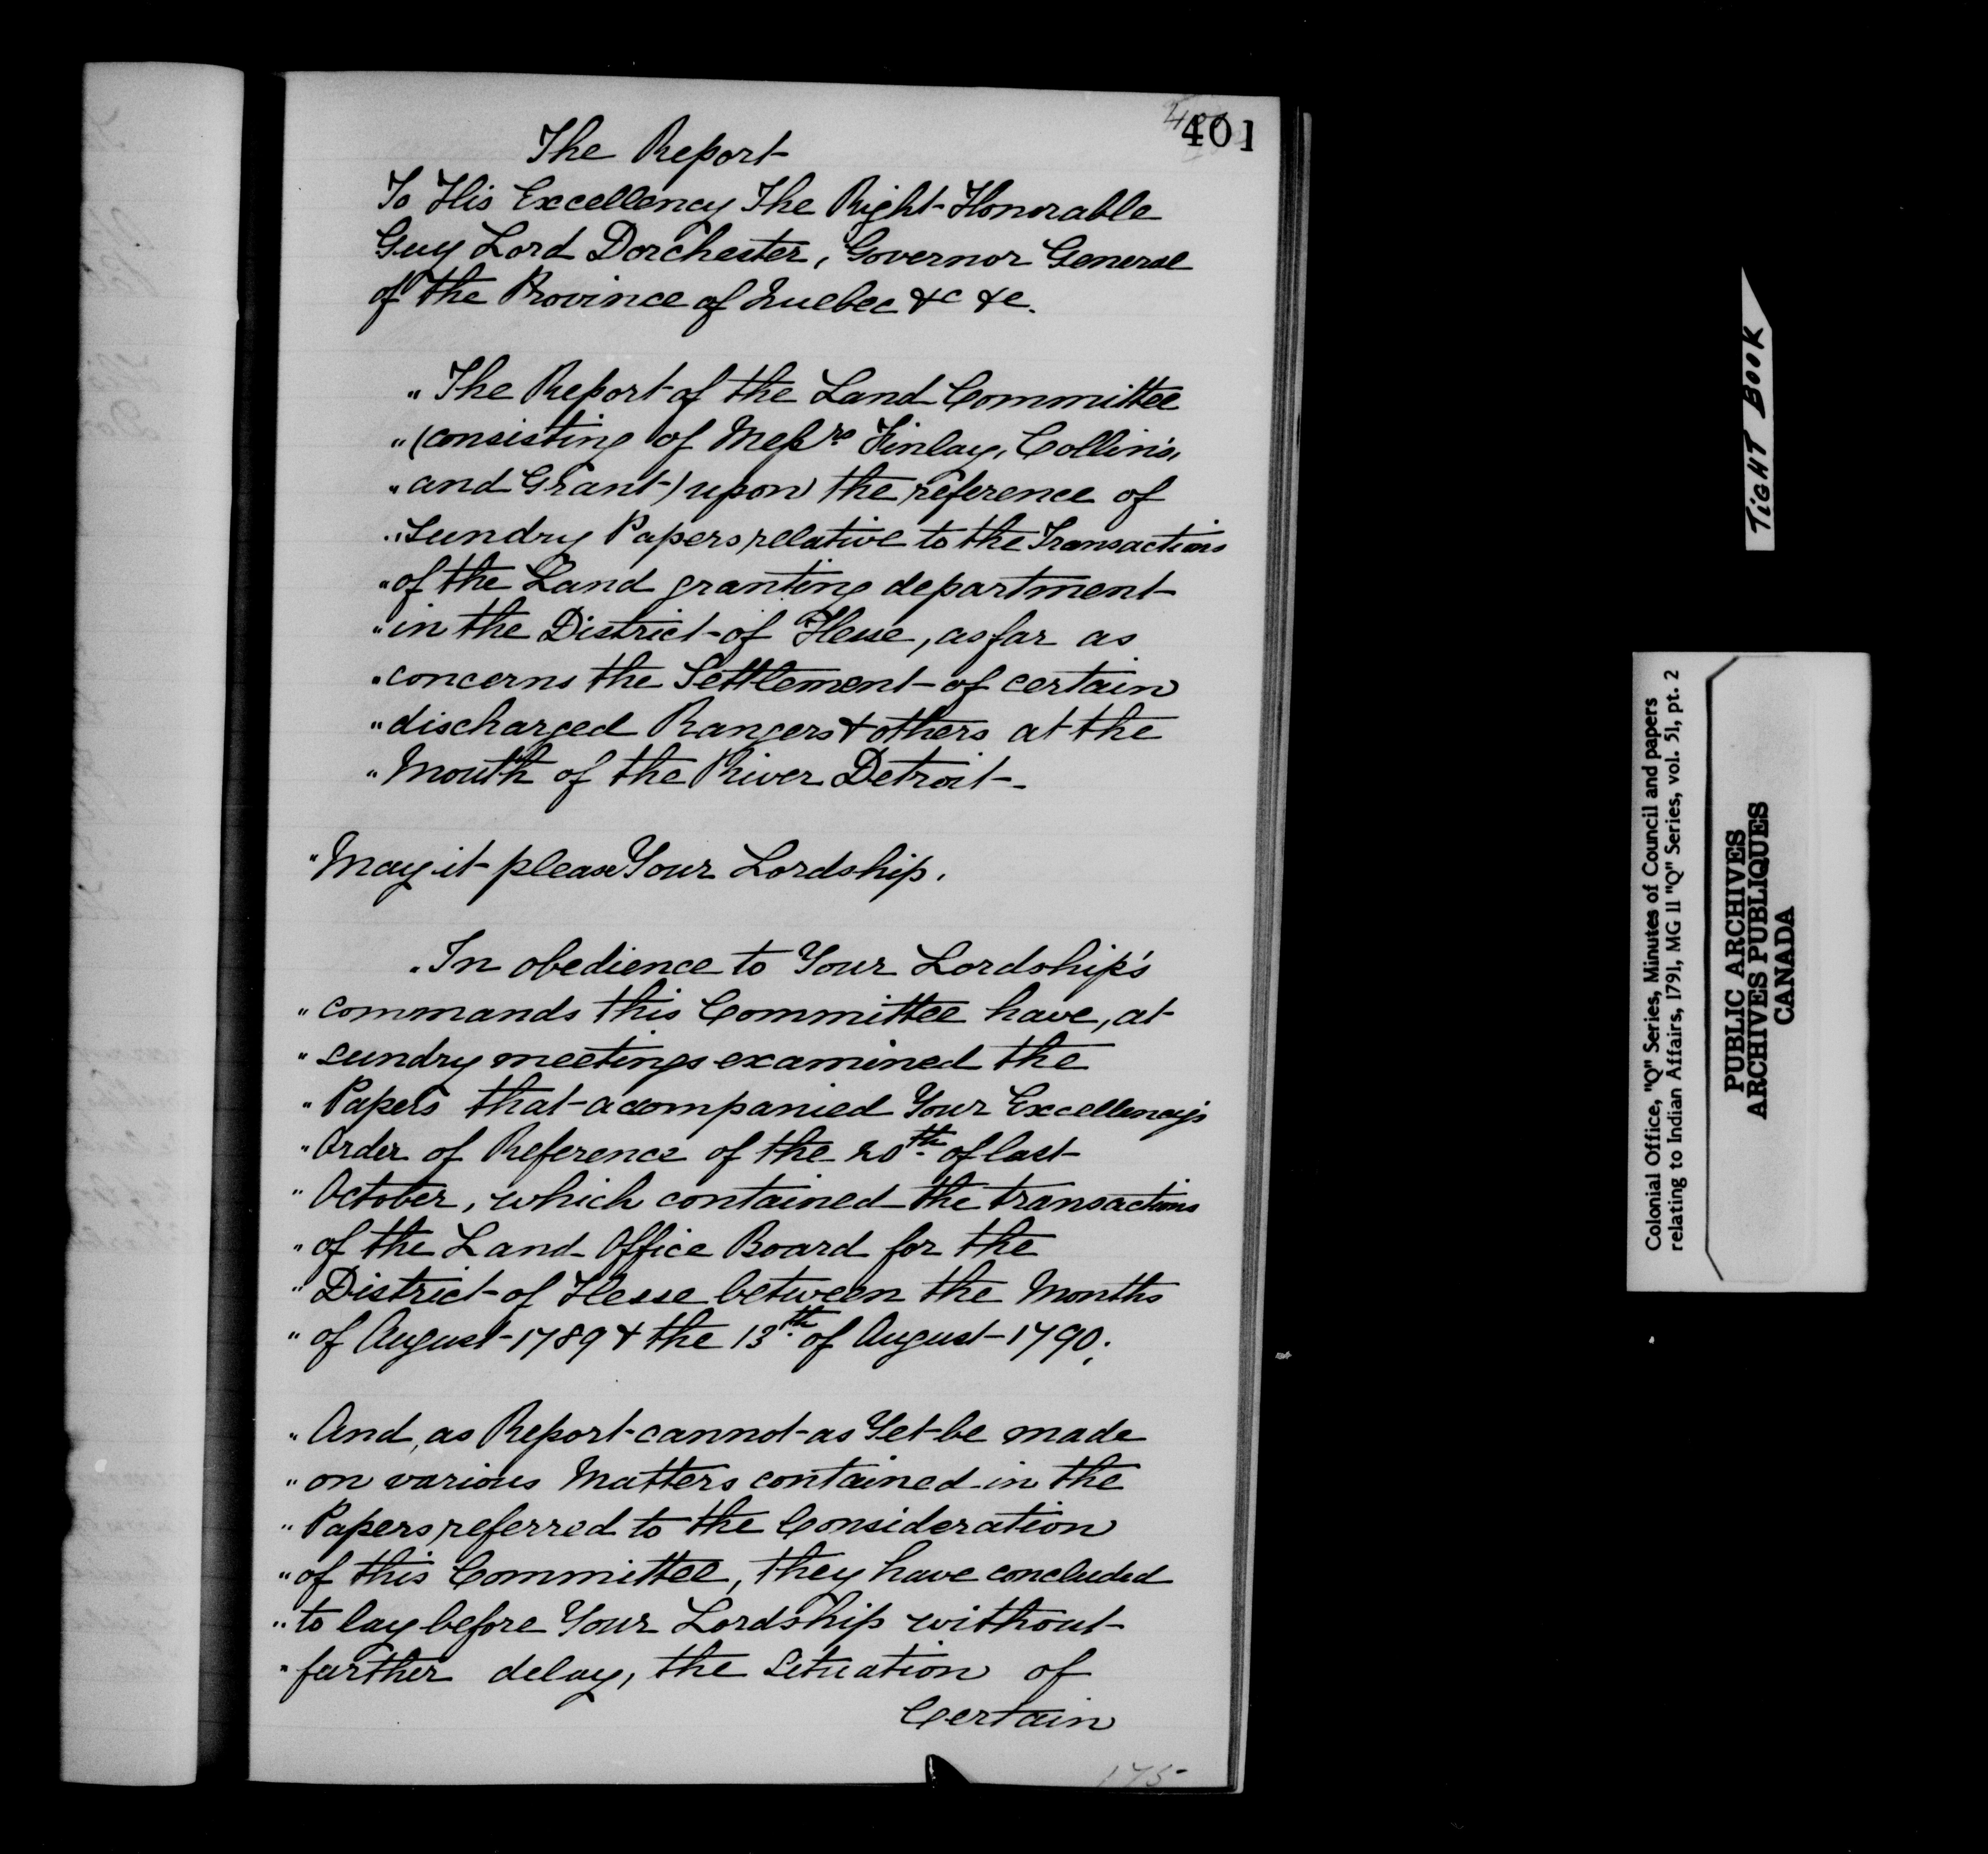 401
The Report
To His Excellency The Right Honorable
Guy Lord Dorchester, Governor General
of the Province of Quebec &c &c.
" The Report of the Land Committee
" (consisting of Messrs Finlay, Collins,
" and Grant) upon the reference of
" Sundry Papers relative to the Transactions
" of the Land granting department
" in the District of Hesse, as far as
" concerns the Settlement of certain
" discharged Rangers & others at the
" Mouth of the River Detroit.
" May it please Your Lordship.
" In obedience to Your Lordship's
" commands this Committee have, at
" sundry meetings examined the
" Papers that accompanied Your Excellency's
" Order of Reference of the 20th of last
" October, which contained the transactions
" of the Land Office Board for the
" District of Hesse between the Months
" of August 1789 & the 13th of August 1790;
" And, as Report cannot as Yet be made
" on various Matters contained in the
" Papers referred to the Consideration
" of this Committee, they have concluded
" to lay before Your Lordship without
" further delay, the Situation of
Certain
175
TIGHT BOOK
Colonial Office, "Q" Series, Minutes of Council and papers
relating to Indian Affairs, 1791, MG 11 "Q" Series, vol. 51, pt. 2
PUBLIC ARCHIVES
ARCHIVES PUBLIQUES
CANADA